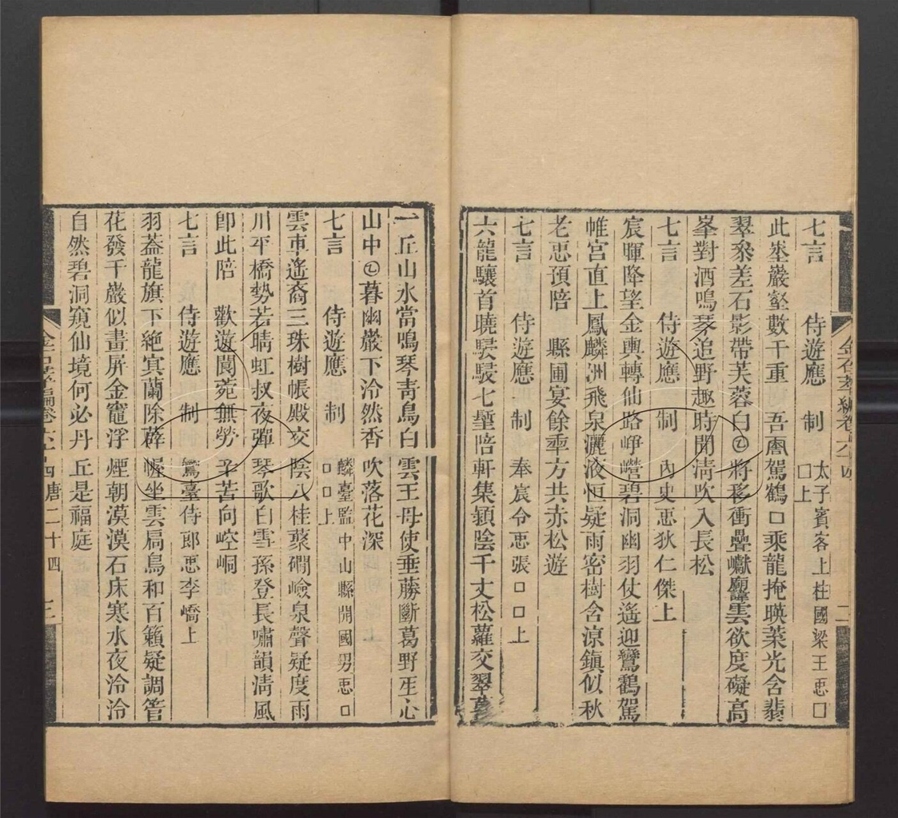 七言　侍遊應　制　太子賓客上柱國梁王𢘑□
□上
此巖壑數千重　吾駕鶴□乘龍掩暎葉光含翡
翠叅差石影帶芙蓉白㋲將移衝疊巘雲欲度礙高
峯對酒鳴琴追野趣時聞清吹入長松
七言　侍遊應　制　內史𢘑狄仁傑上
宸暉降望金輿轉仙路崢嶸碧洞幽羽仗遙迎鸞鶴駕
帷宮直上鳳麟洲飛泉灑液恒疑雨密樹含涼鎮似秋
老𢘑預陪　縣圃宴餘年方共赤松遊
七言　侍遊應　制　奉宸令𢘑張□□上
六龍驤首曉駸駸七聖陪軒集潁陰千丈松蘿交翠幕
金石萃編卷六十四
二
一丘山水當鳴琴青鳥白雲王母使垂藤斷葛野生心
山中暮幽巖下泠然香吹落花深
七言　侍遊應　制　麟臺監中山縣開國男𢘑□
□□上
雲車遙裔三珠樹帳殿交陰八桂叢磵嶮泉聲疑度雨
川平橋勢若晴虹叔夜彈琴歌白雪孫登長嘯韻清風
卽此陪　歡遊閬苑無勞辛苦向崆峒
七言　侍遊應　制　鸞臺侍郎𢘑李嶠上
羽葢龍旗下絶㝠蘭除薜幄坐雲扃鳥和百籟疑調管
花發千巖似畫屏金竈浮煙朝漠漠石床寒水夜泠泠
自然碧洞窺仙境何必丹丘是福庭
金石萃編卷六十四唐二十四
三